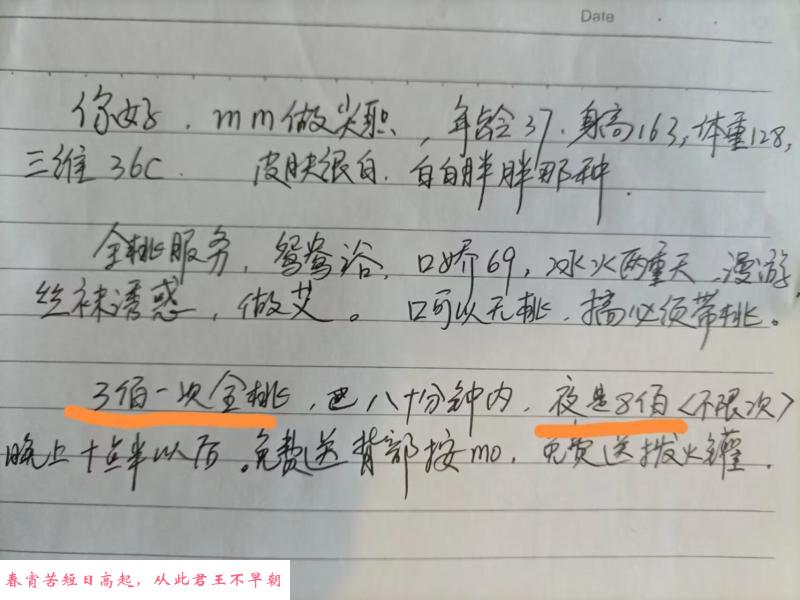 Date
你好．mm做尖职，年龄37．身高163，体重128，
三维36C．皮肤很白．白白胖胖那种．
全桃服务，鸳鸯浴，口娇69，冰火两重天．漫游
丝袜诱惑，做艾。口可以无桃．搞必须带桃。
3佰一次全桃，八十分钟内．夜是8佰〈不限次〉
晚上十点半以后。免费送背部按mo．免费送拔火罐．
春宵苦短日高起，从此君王不早朝